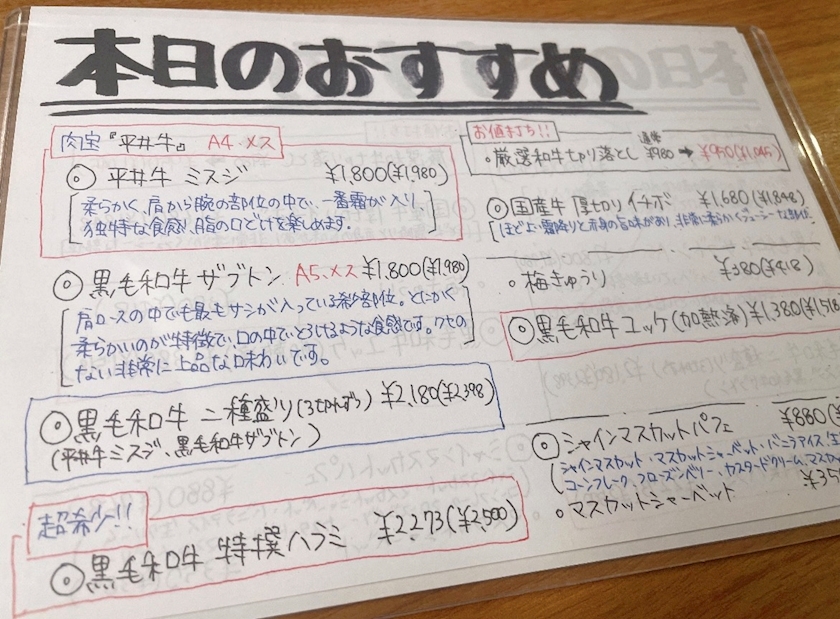 本日のおすすめ
肉宝『平井牛』 A4・メス
◎ 平井牛 ミスジ ¥1,800(¥1,980)
柔らかく、肩から腕の部位の中で、一番霜が入り、
独特な食感、脂の口どけを楽しめます。
◎ 黒毛和牛 ザブトン A5.メス ¥1,800(¥1,980)
肩ロースの中でも最もサシが入っている希少部位。とにかく
柔らかいのが特徴で、口の中でとろけるような食感です。クセの
ない非常に上品な味わいです。
◎ 黒毛和牛 二種盛り(3切れずつ) ¥2,180(¥2,398)
(平井牛ミスジ、黒毛和牛ザブトン)
超希少!!
◎ 黒毛和牛 特撰ハラミ ¥2,273(¥2,500)
お値打ち!!
通常
・厳選和牛切り落とし ¥980 → ¥950(¥1,045)
◎ 国産牛 厚切りイチボ ¥1,680(¥1,848)
ほど良い霜降りと赤身の旨味があり、非常に柔らかくジューシーな部位。
・梅きゅうり ¥380(¥418)
◎ 黒毛和牛ユッケ(加熱済) ¥1,380(¥1,51
◎ シャインマスカットパフェ ¥880(¥
(シャインマスカット・マスカットシャーベット・バニラアイス・生
コーンフレーク、フローズンベリー・カスタードクリーム、マスカ
・マスカットシャーベット ¥35